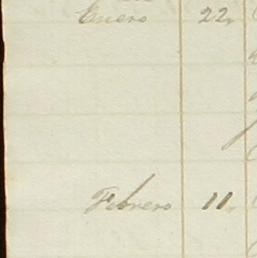 Enero 22.
Febrero 11.